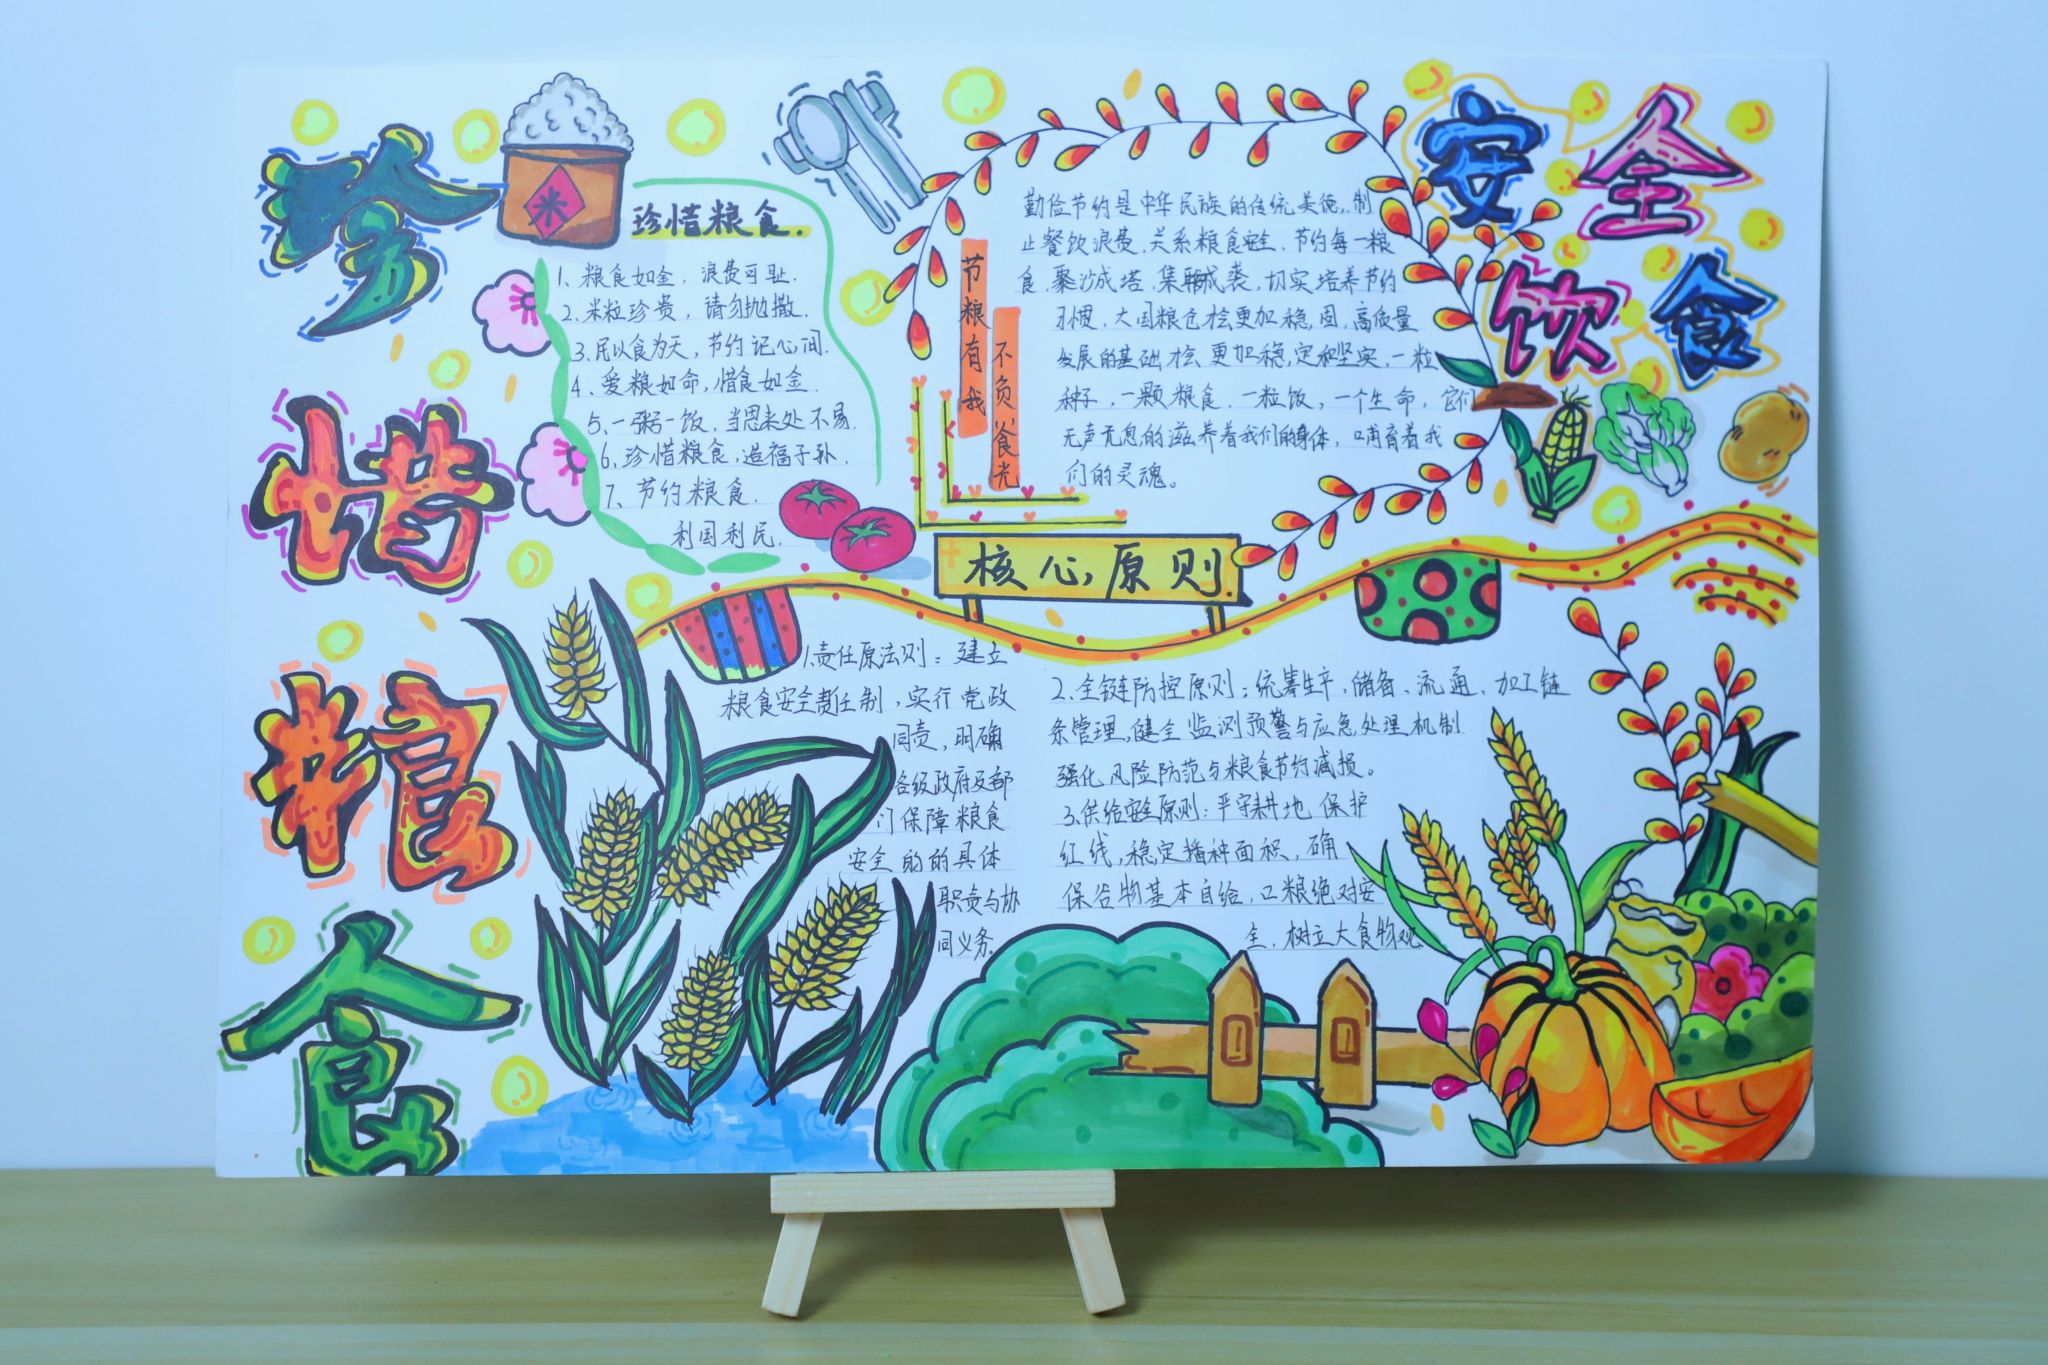 珍惜粮食
安全
饮食
米
珍惜粮食.
1、粮食如金，浪费可耻.
2.米粒珍贵，请勿抛撒.
3.民以食为天，节约记心间.
4、爱粮如命，惜食如金.
5、一粥一饭，当思来处不易.
6、珍惜粮食，造福子孙.
7、节约粮食.
利国利民.
节粮有我
不负“食”光
勤俭节约是中华民族的传统美德，制
止餐饮浪费，关系粮食安全，节约每一粮
食，聚沙成塔，集腋成裘，切实培养节约
习惯，大国粮仓才会更加稳固，高质量
发展的基础才会更加稳定和坚实，一粒
种子，一颗粮食，一粒饭，一个生命，它们
无声无息的滋养着我们的身体，哺育着我
们的灵魂。
核心原则.
1.责任原法则：建立
粮食安全责任制，实行党政
同责，明确
各级政府及部
门保障粮食
安全的的具体
职责与协
同义务.
2.全链防控原则：统筹生产，储备、流通、加工链
条管理，健全监测预警与应急处理机制.
强化风险防范与粮食节约减损。
3.供给安全原则：严守耕地保护
红线，稳定播种面积，确
保谷物基本自给，口粮绝对安
全，树立大食物观